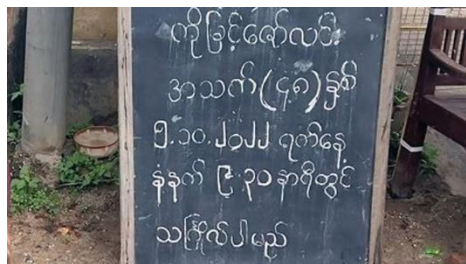 ကိုမြင့်ဇော်လင်း
အသက်(၄၈)နှစ်
၅.၁၀.၂၀၂၂ ရက်နေ့
နံနက် ၉း၃၀ နာရီတွင်
သင်္ဂြိုလ်ပါမည်